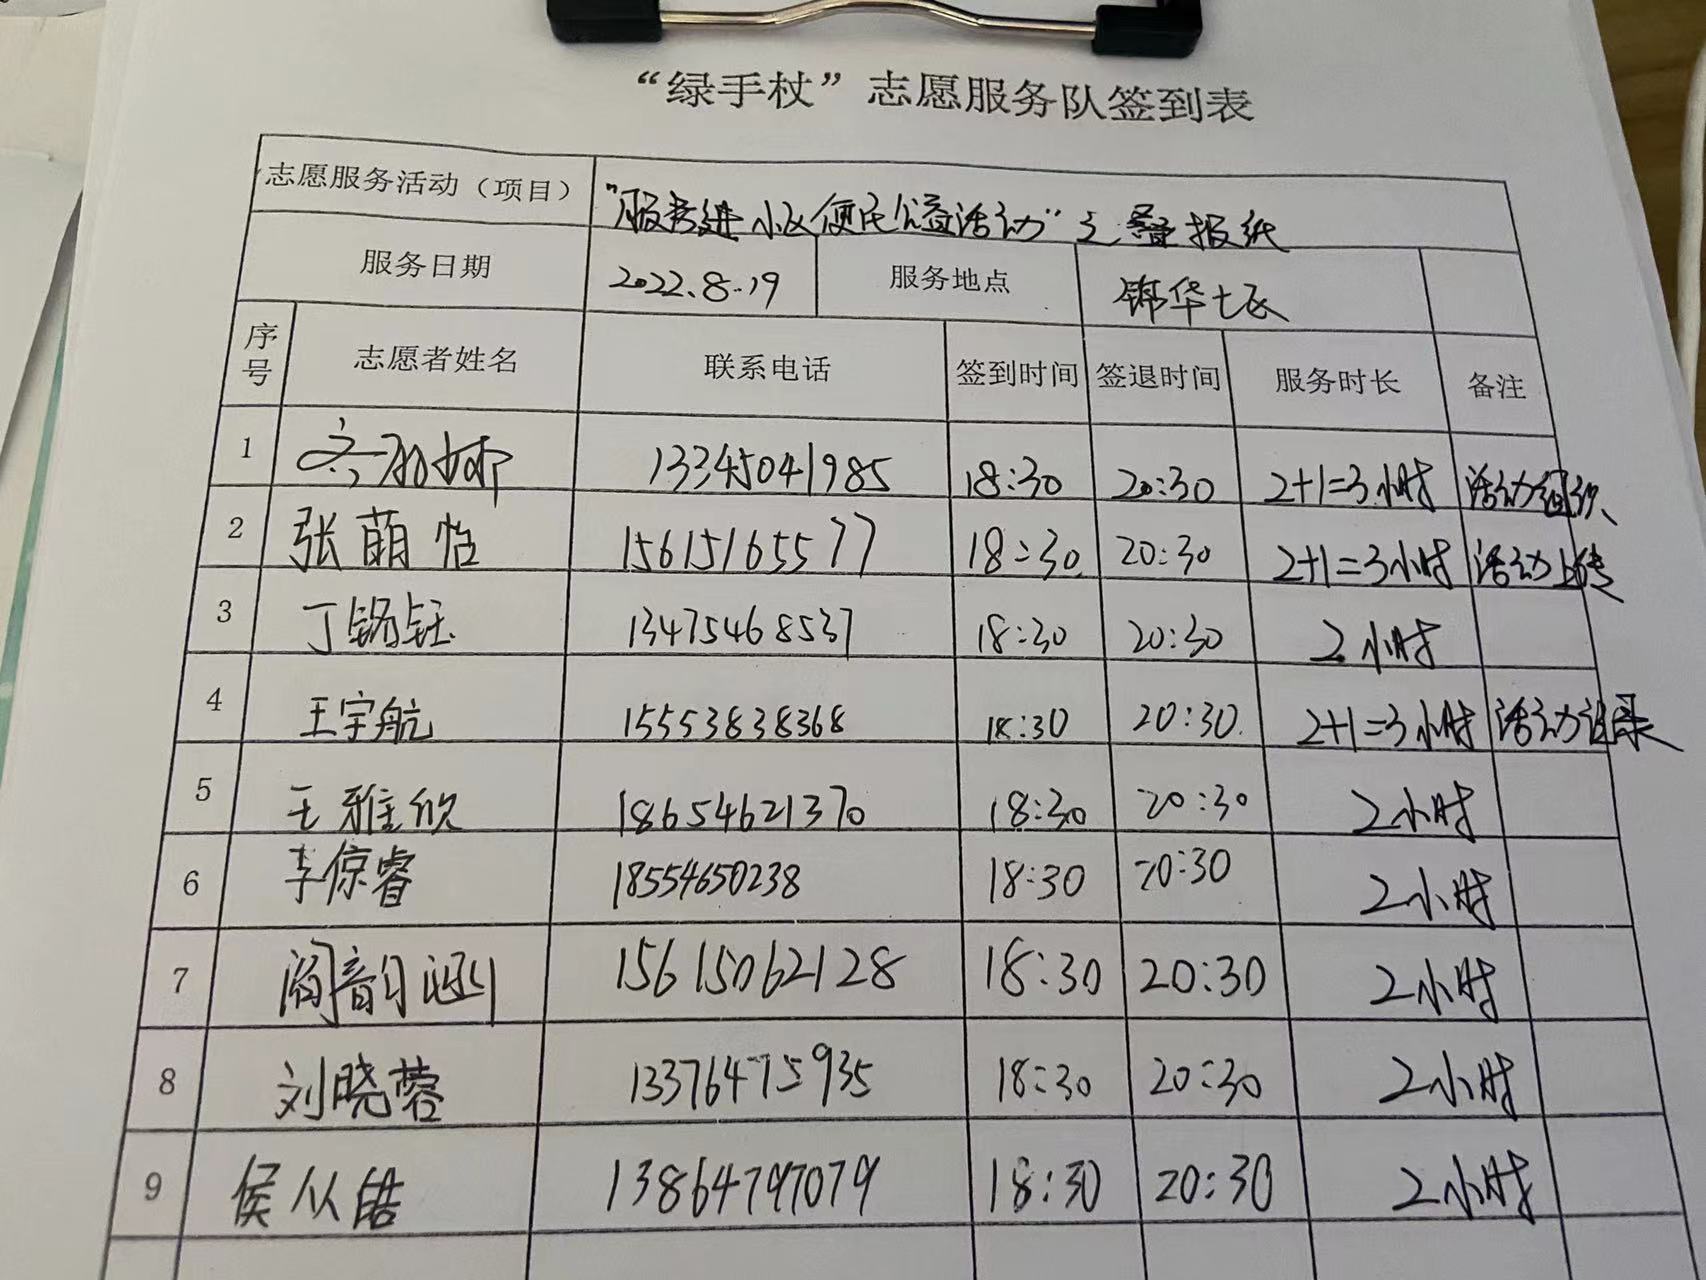 “绿手杖”志愿服务队签到表
志愿服务活动（项目） “服务进小区便民公益活动”之叠报纸
服务日期 2022.8.19 服务地点 锦华七区
序号 志愿者姓名 联系电话 签到时间 签退时间 服务时长 备注
1 13345041985 18:30 20:30 2+1=3小时 活动组织
2 张萌怡 15615165577 18:30 20:30 2+1=3小时 活动上传
3 丁钰 13475468537 18:30 20:30 2小时
4 王宇航 15553838368 18:30 20:30 2+1=3小时 活动记录
5 王雅欣 18654621370 18:30 20:30 2小时
6 李倞睿 18554650238 18:30 20:30 2小时
7 韵涵 15615062128 18:30 20:30 2小时
8 刘晓蓉 13376475935 18:30 20:30 2小时
9 侯从皓 13864797079 18:30 20:30 2小时